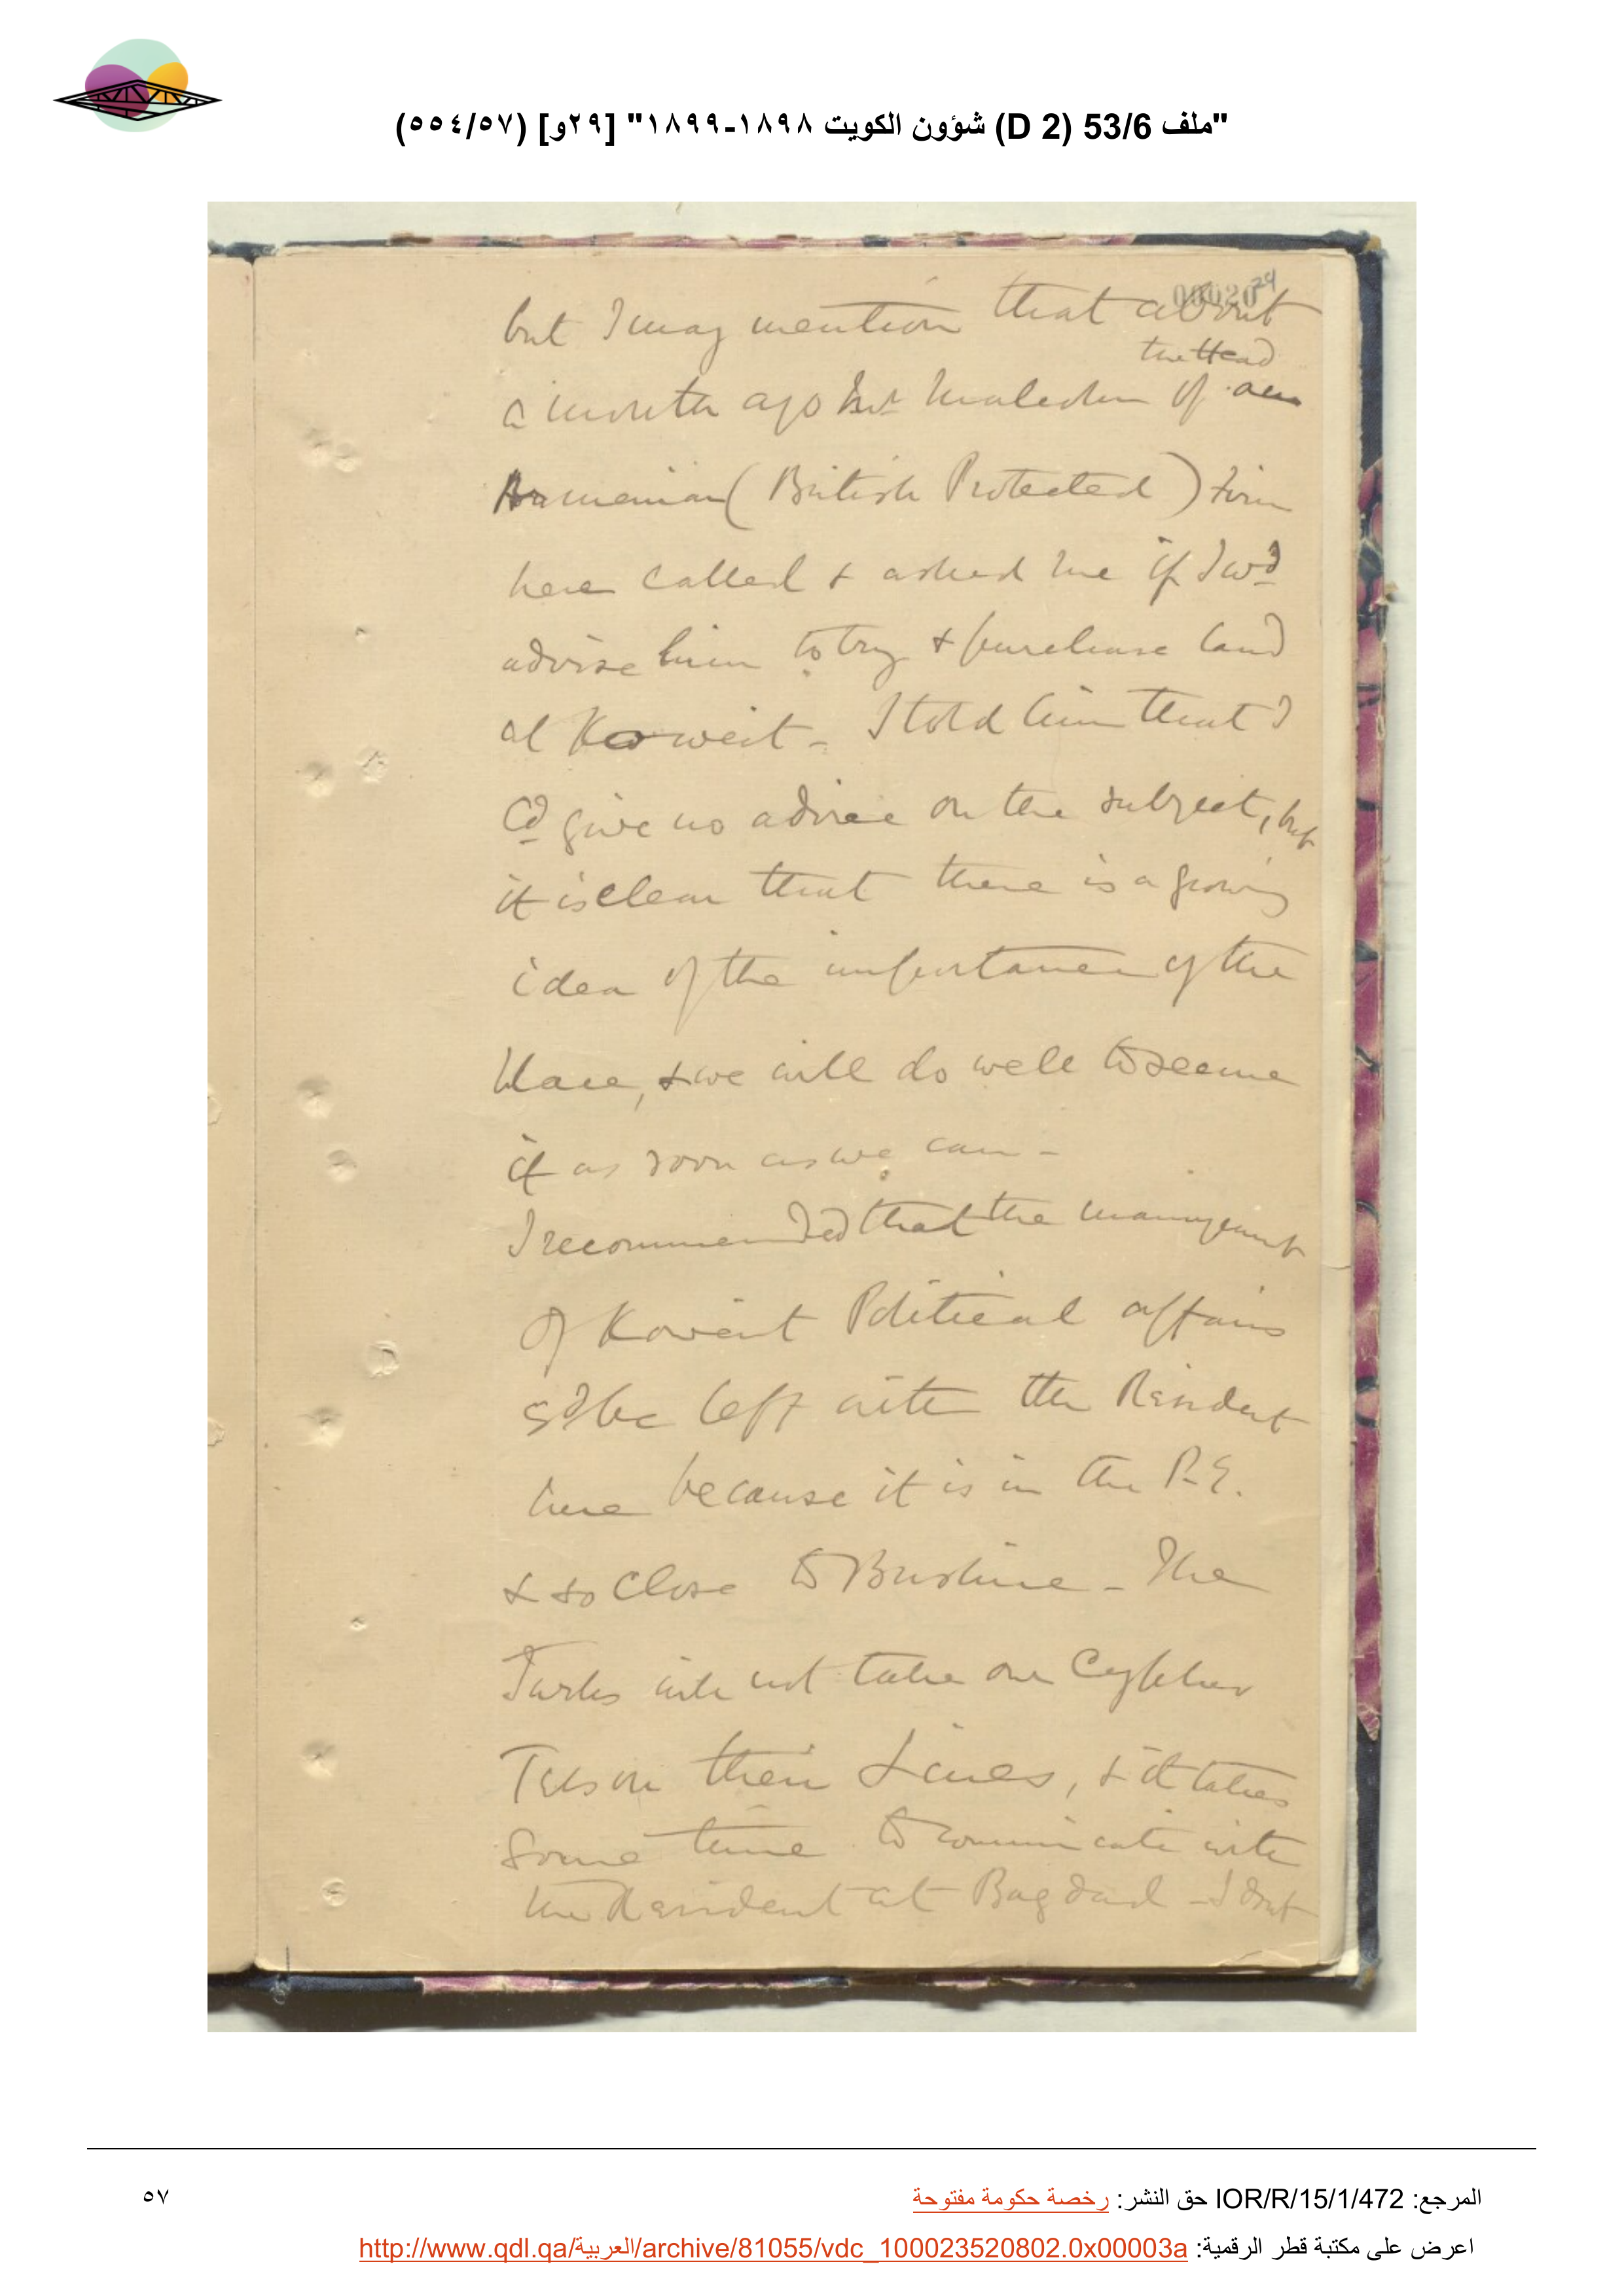 "ملف 53/6 (D 2) شؤون الكويت ١٨٩٨-١٨٩٩" [٢٩و] (٥٥٤/٥٧)
29
but I may mention that about
the Head
a month ago of an
Armenian (British Protected) Firm
here called & asked me if I wd
advise him to try & purchase land
at Koweit - I told him that I
cd give no advice on the subject, but
it is clear that there is a growing
idea of the importance of the
place, & we will do well to secure
it as soon as we can -
I recommended that the management
of Koweit Political affairs
sd be left with the Resident
here because it is in the P.G.
& so close to Bushire - The
Turks will not take our Cypher
Tels on their Lines, & it takes
some time to communicate with
the Resident at Bagdad - I don't
المرجع: IOR/R/15/1/472 حق النشر: رخصة حكومة مفتوحة
٥٧
اعرض على مكتبة قطر الرقمية: http://www.qdl.qa/العربية/archive/81055/vdc_100023520802.0x00003a